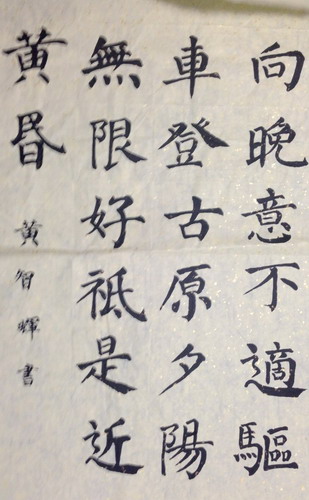 向晚意不適驅
車登古原夕陽
無限好祗是近
黃昏
黃智輝書